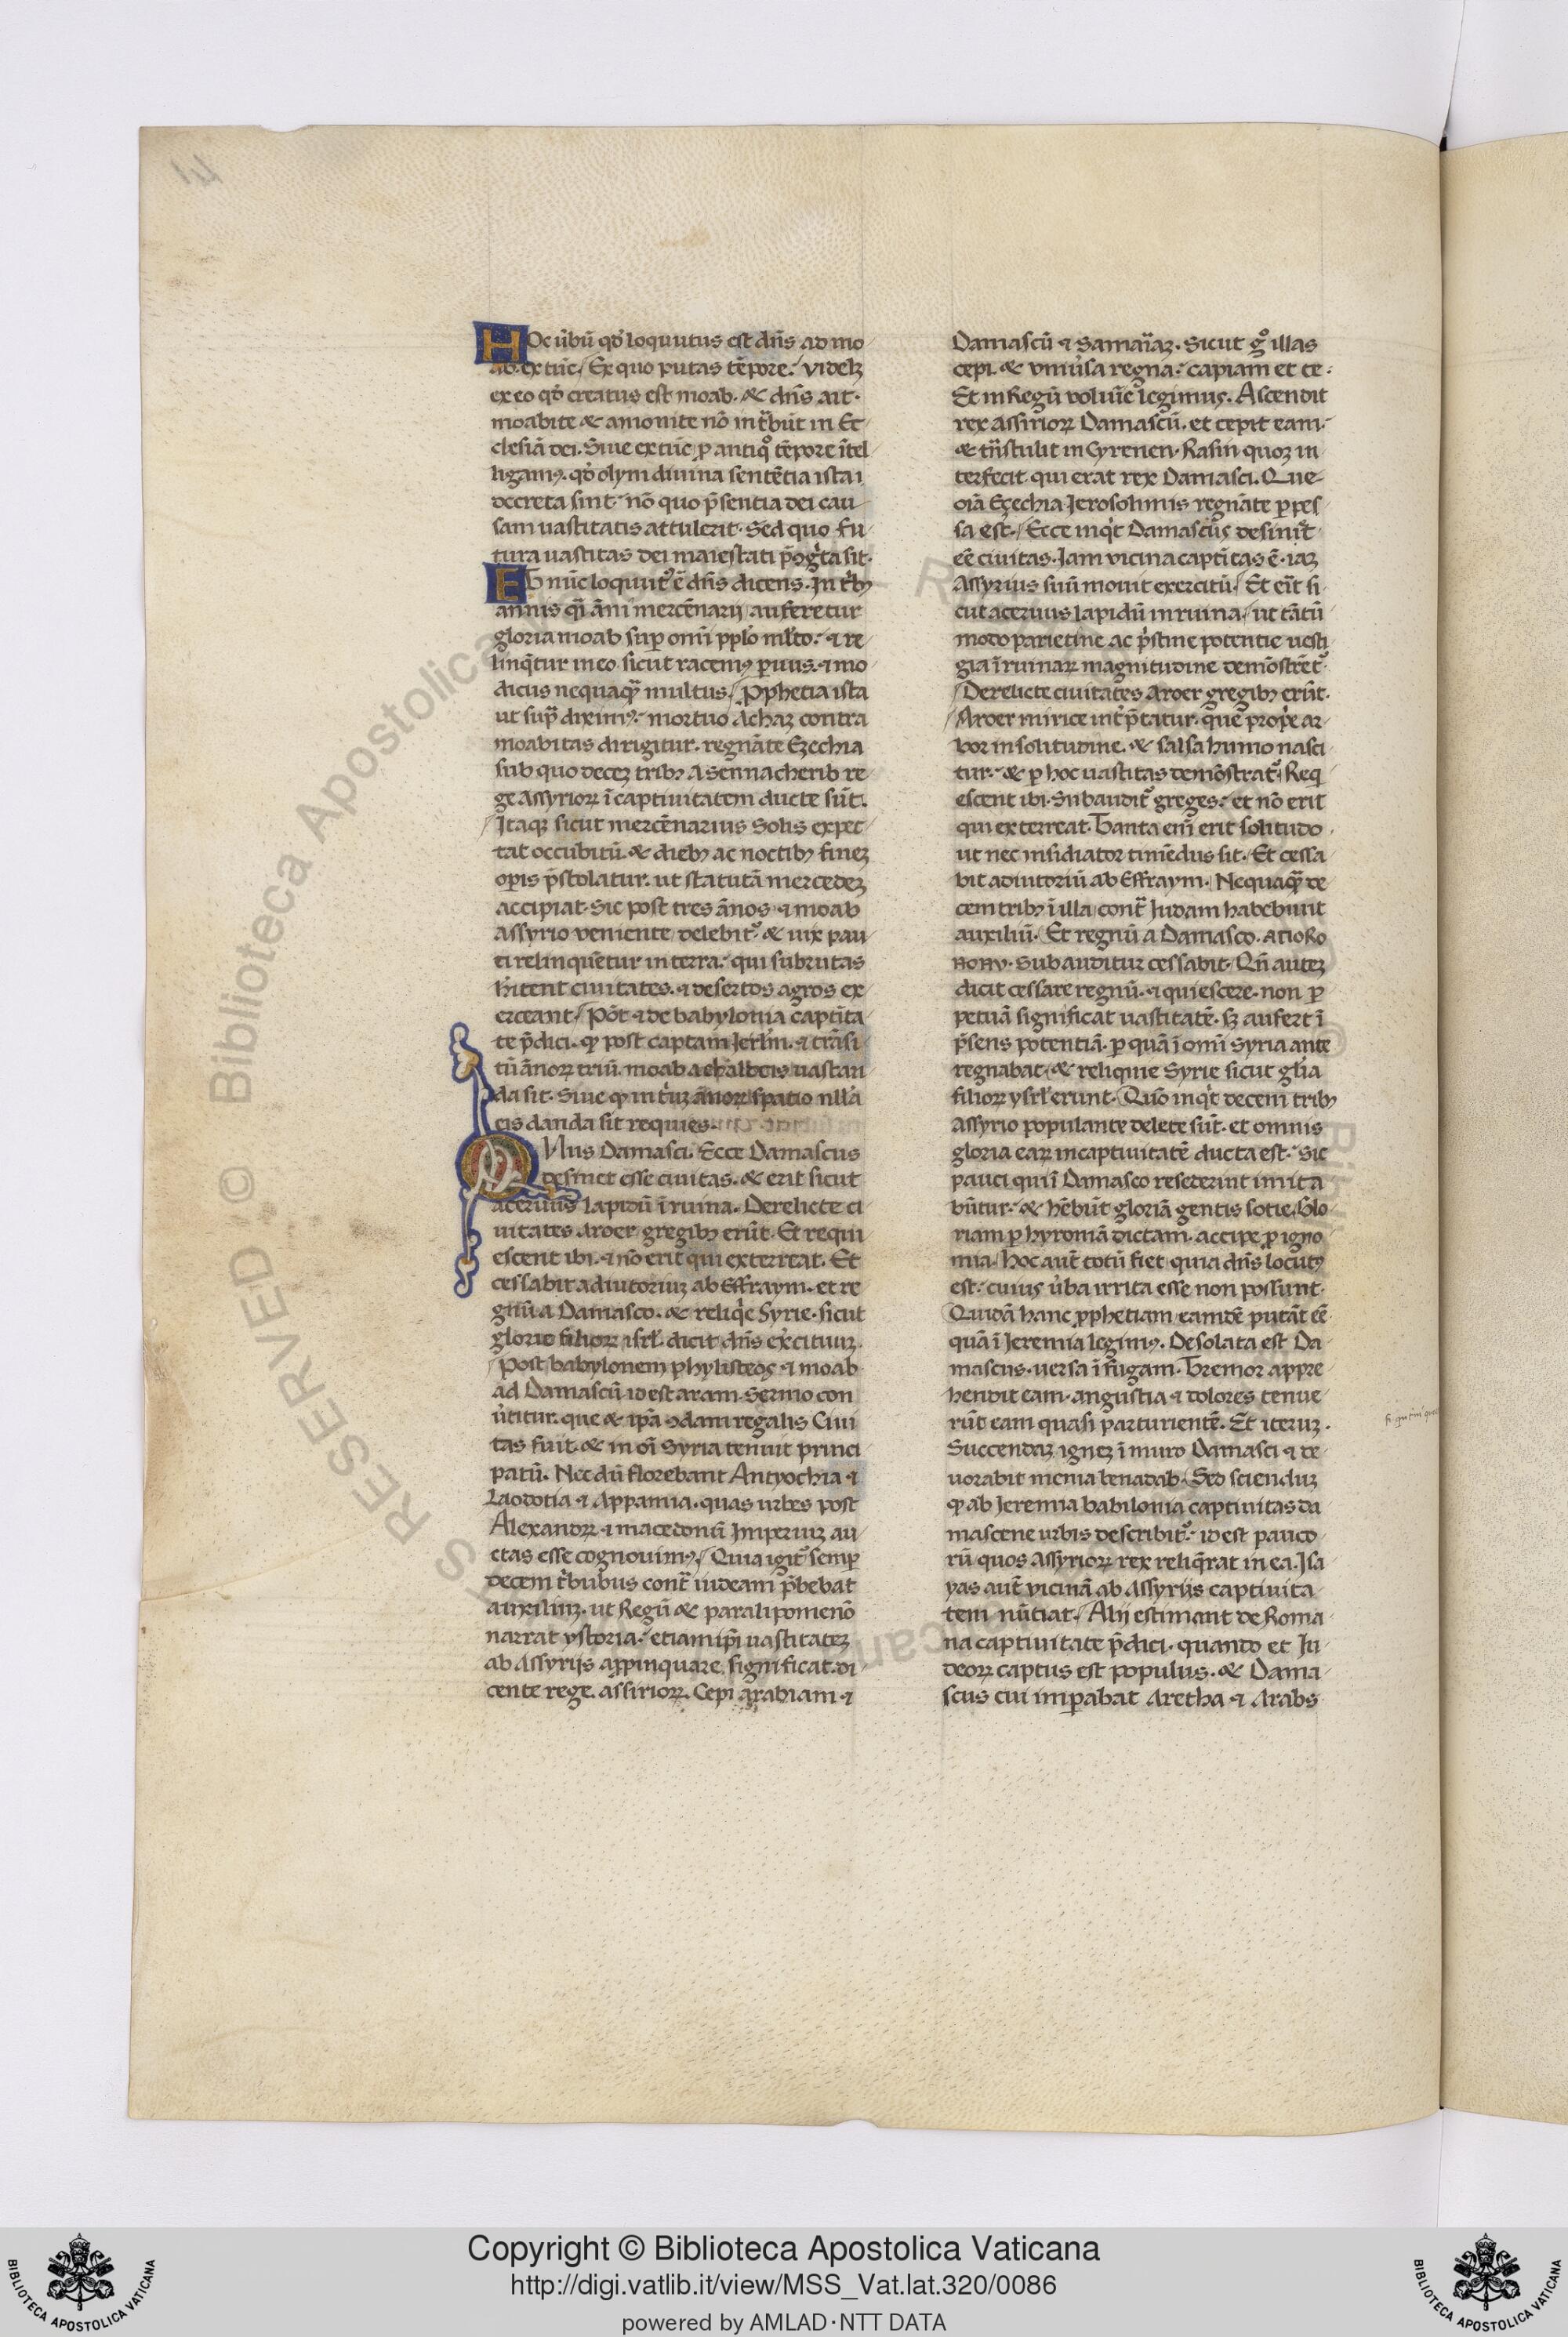 HOc ūbū qd̓ loquutus est dn̄s ad mo
ab ex tūc. Ex quo putas tēpore. videlꝫ
ex eo qd̓ creatus est moab. & dn̄s ait.
moabite & amonite nō int̄būt in Ec
clesiā dei. Siue ex tūc ꝑ antiqͦ tēpore ītel
ligamꝰ. qd̓ olym diuina sentētia ista
decreta sint. nō quo p̄sentia dei cau
sam uastitatis attulerit. Sed quo fu
tura uastitas dei maiestati p̄ogͥta sit.
ET nūc loquut̓ ē dn̄s dicens. In tͥbꝫ
annis qͣi āni mercēnarij auferetur
gloria moab suꝑ omī pplō mlto. ⁊ re
linqͣtur in eo sicut racemꝰ ꝑuus. ⁊ mo
dicus nequaqͣ multus. Pphetia ista
ut supͣ diximꝰ. mortuo Achaz contra
moabitas dirigitur. regnāte Ezechia
sub quo decez tribꝫ a Sennacherib re
ge assyrioꝝ ī captiuitatem ducte sūt.
Itaqꝫ sicut mercēnarius solis expec
tat occubitū. & diebꝫ ac noctibꝫ finez
oꝑis p̄stolatur. ut statutā mercedez
accipiat. Sic post tres ānos ⁊ moab
assyrio veniente delebit̓. & uix pau
ci relinquētur in terra. qui subrutas
hītent ciuitates. ⁊ desertos agros ex
erceant. Pōt ⁊ de babylonia captīta
te p̄dici. ꝙ post captam Ierlm̄. ⁊ trāsi
tū ānoꝝ triū. moab a chaldeis uastan
da sit. Siue ꝙ in tͥuz ānoꝝ spatio nlla
eis danda sit requies.
ONus Damasci. Ecce Damascus
desinet esse ciuitas. & erit sicut
aceruus lapidū ī ruina. Derelicte ci
uitates aroer gregibꝫ erūt. Et requi
escent ibi. ⁊ nō erit qui exterreat. Et
cessabit adiutoriuz ab Effraym. et re
gnū a Damasco. & reliqͥe Syrie. sicut
glorie filioꝝ isrl̄ dicit dn̄s exͤcituuz.
Post babylonem phylisteos ⁊ moab
ad Damascū id est aram. Sermo con
ūtitur. que & ip̄a qdam regalis Ciui
tas fuit. & in oī Syria tenuit princi
patū. Nec dū florebant Antyochia ⁊
Laodotia ⁊ Appamia. quas urbes post
Alexandꝝ ⁊ macedonū Imperiuz au
ctas esse cognouimꝰ. Quia igit̓ semꝑ
decem tͥbubus contͣ iudeam p̄bebat
auxiliuz. ut Regū & paralipomenō
narrat ystoria. etiam ip̄i uastitatez
ab Assyrijs appinquare significat. di
cente rege. assirioꝝ. Cepi arabiam ⁊
Damascū ⁊ Samariaz. Sicut gͦ illas
cepi. & vniūsa regna. capiam et te.
Et in Regū voluīe legimus. Ascendit
rex assirioꝝ Damascū. et cepit eam.
& tn̄stulit in Cyrenen. Rasin quoz in
terfecit. qui erat rex Damasci. Que
oīa Ezechia Ierosolimis regnāte ꝑpes
sa est. Ecce inqͥt Damascus desinit
eē ciuitas. Iam vicina captītas ē. iaz
Assyrius suū mouit exercitū. Et eīt si
cut aceruus lapidū in ruina. ut tātū
modo parietine ac p̄stine potentie uesti
gia ī ruinaꝝ magnitudine demōstrēt̓.
Derelicte ciuitates Aroer gregibꝫ erūt.
Aroer mirice int̄p̄tatur. que proprie ar
bor in solitudine. & salsa humo nasci
tur. & ꝑ hoc uastitas demōstrat̓. Requi
escent ibi. Subaudit̓ greges. et nō erit
qui exterreat. Tanta enī erit solitudo
ut nec insidiator timēdus sit. Et cessa
bit adiutoriū ab Effraym. Nequaqͣ de
cem tribꝫ ī illa contͣ Iudam habebunt
auxiliū. Et regnū a Damasco.
Subauditur cessabit. Qn̄ autez
dicit cessare regnū. ⁊ quiescere. non ꝑ
petuā significat uastitatē. sꝫ aufert ī
p̄sens potentiā. ꝑ quā ī omī Syria ante
regnabat. & reliquie Syrie sicut glīa
filioꝝ ysrl̄ erunt. Quō inqͥt decem tribꝫ
Assyrio populante delete sūt. et omnis
gloria eaꝝ in captiuitatē ducta est. Sic
pauci qui ī Damasco resederint imita
būtur. & hēbūt gloriā gentis sotie. Glo
riam ꝑ hyroniā dictam. accipe ꝑ igno
mia. Hoc aut̄ totū fiet. quia dn̄s locutꝰ
est. cuius ūba irrita esse non possunt.
Quidā hanc pphetiam eamdē putāt eē
quā ī Ieremia legimꝰ. Desolata est Da
mascus. uersa ī fugam. Tremor appre
hendit eam. angustia ⁊ dolores tenue
rūt eam quasi parturientē. Et iteruz.
Succendaz ignez ī muro Damasci ⁊ de
uorabit menia benadab. Sed sciendum
ꝙ ab Ieremia babilonia captiuitas da
mascene urbis describit̓. id est pauco
rū quos Assyrioꝝ rex reliqͥrat in ea. Isa
yas aut̄ vicinā ab Assyriis captiuita
tem nūtiat. Alij estimant de Roma
na captiuitate p̄dici. quando et Iu
deoꝝ captus est populus. & Dama
scus cui imꝑabat Aretha ⁊ Arabs
Copyright © Biblioteca Apostolica Vaticana
http://digi.vatlib.it/view/MSS_Vat.lat.320/0086
powered by AMLAD·NTT DATA
BIBLIOTECA APOSTOLICA VATICANA
BIBLIOTECA APOSTOLICA VATICANA